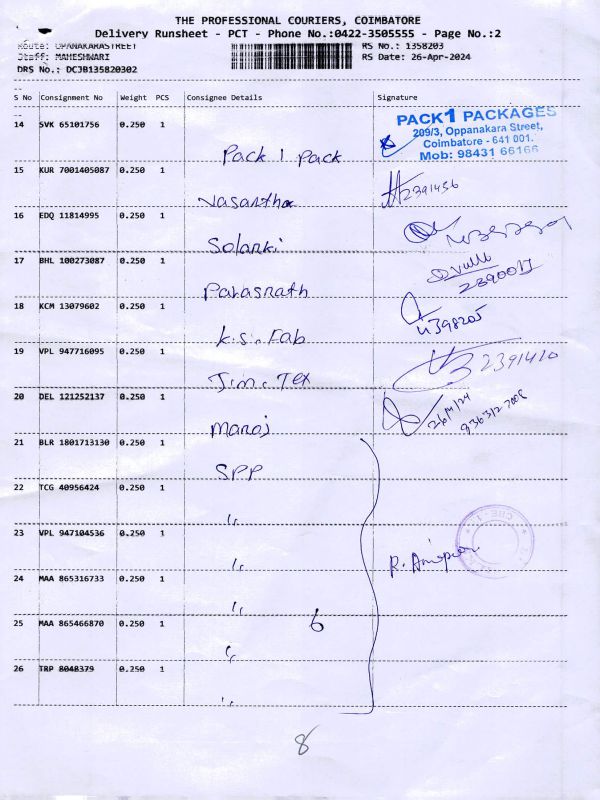 THE PROFESSIONAL COURIERS, COIMBATORE
Delivery Runsheet - PCT - Phone No.:0422-3505555 - Page No.:2
Route: OPPANAKARASTREET RS No.: 1358203
Staff: MAHESHWARI RS Date: 26-Apr-2024
DRS No.: DCJB135820302
S No Consignment No Weight PCS Consignee Details Signature
14 SVK 65101756 0.250 1 Pack 1 Pack
PACK1 PACKAGES
209/3, Oppanakara Street,
Coimbatore - 641 001.
Mob: 98431 66166
15 KUR 7001405087 0.250 1 Vasantha 2391456
16 EDQ 11814995 0.250 1 Solanki
17 BHL 100273087 0.250 1 Parasnath 2390017
18 KCM 13079602 0.250 1 K.S. Fab 4398205
19 VPL 947716095 0.250 1 Jim. Tex 2391410
20 DEL 121252137 0.250 1 Manoj 26/4/24
21 BLR 1801713130 0.250 1 SPP
22 TCG 40956424 0.250 1 "
23 VPL 947104536 0.250 1 " R.
24 MAA 865316733 0.250 1 "
25 MAA 865466870 0.250 1 " 6
26 TRP 8048379 0.250 1 "
8